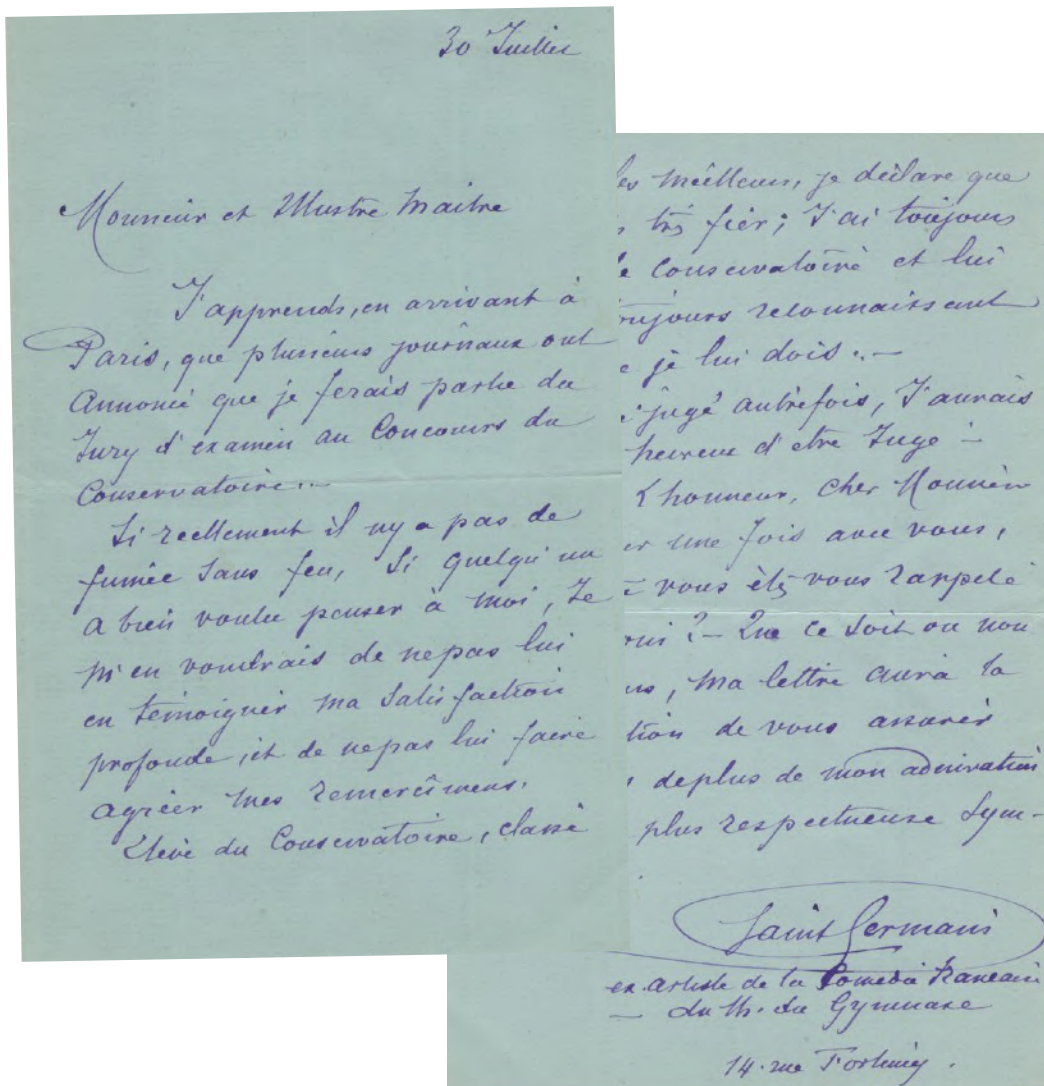 30 Juillet
Monsieur et Illustre Maître
J'apprends, en arrivant à
Paris, que plusieurs journaux ont
Annoncé que je ferais partie du
Jury d'examen au Concours du
Conservatoire..-
Si reellement il ny a pas de
fumée sans feu, Si quelqu'un
a bien voulu penser à moi, Je
m'en voudrais de ne pas lui
en témoigner ma Satisfaction
profonde, et de ne pas lui faire
agréer mes remercimens.
Elève du Conservatoire, classé
les meilleurs, je déclare que
très fier; J'ai toujours
Conservatoire et lui
toujours reconnaissant
je lui dois..-
jugé autrefois, J'aurais
heureux d'etre Juge -
L'honneur, cher Monsieur
une fois avec vous,
vous êtes vous rappelé
? - Que ce soit ou non
, ma lettre aura la
tion de vous assurer
deplus de mon admiration
plus respectueuse Sym-
Saint Germain
ex. artiste de la Comédie Française
- du th. du Gymnase
14. rue Fortuny.